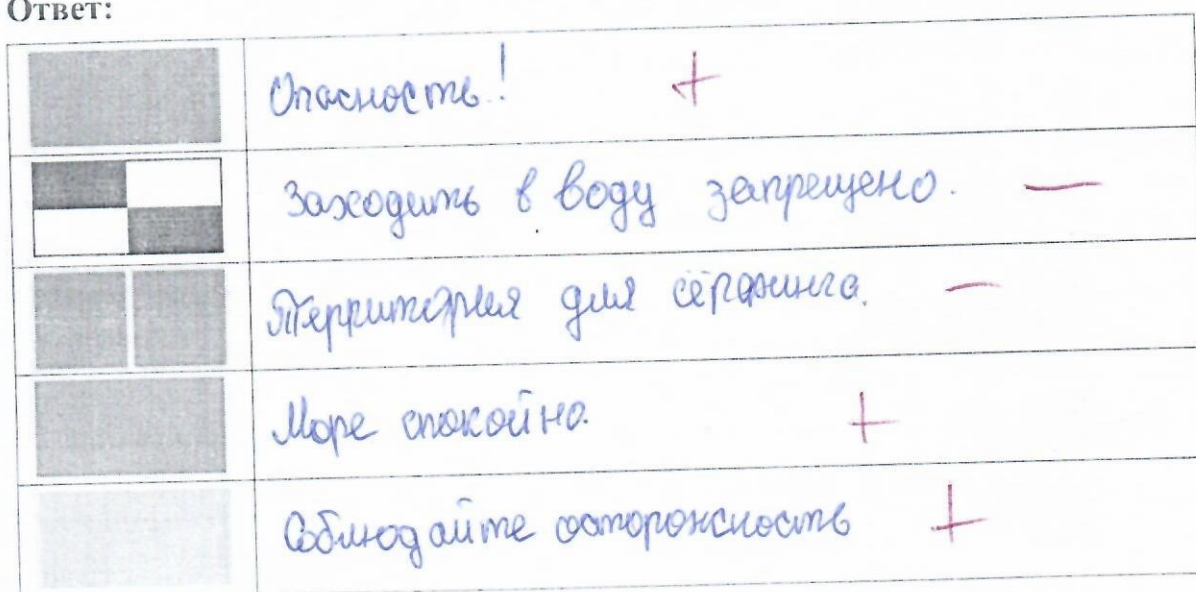 Ответ:
Опасность! +
Заходить в воду запрещено. —
Территория для сёрфинга. —
Море спокойно. +
Соблюдайте осторожность +